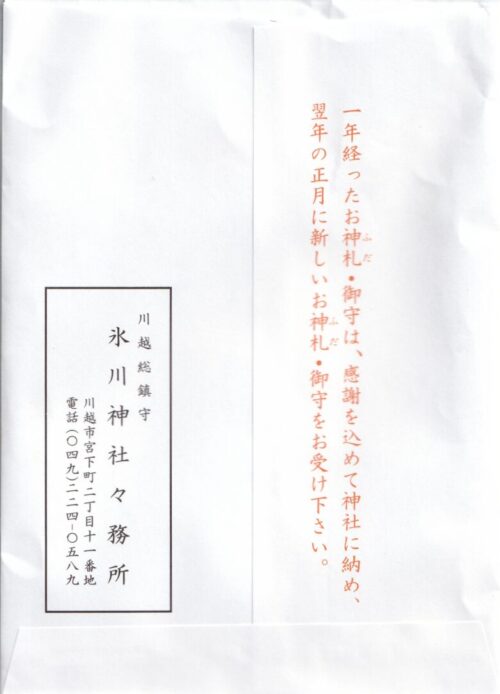 一年経ったお神札・御守は、感謝を込めて神社に納め、
ふだ
翌年の正月に新しいお神札・御守をお受け下さい。
ふだ
川越総鎮守
氷川神社々務所
川越市宮下町二丁目十一番地
電話(〇四九)二二四-〇五八九